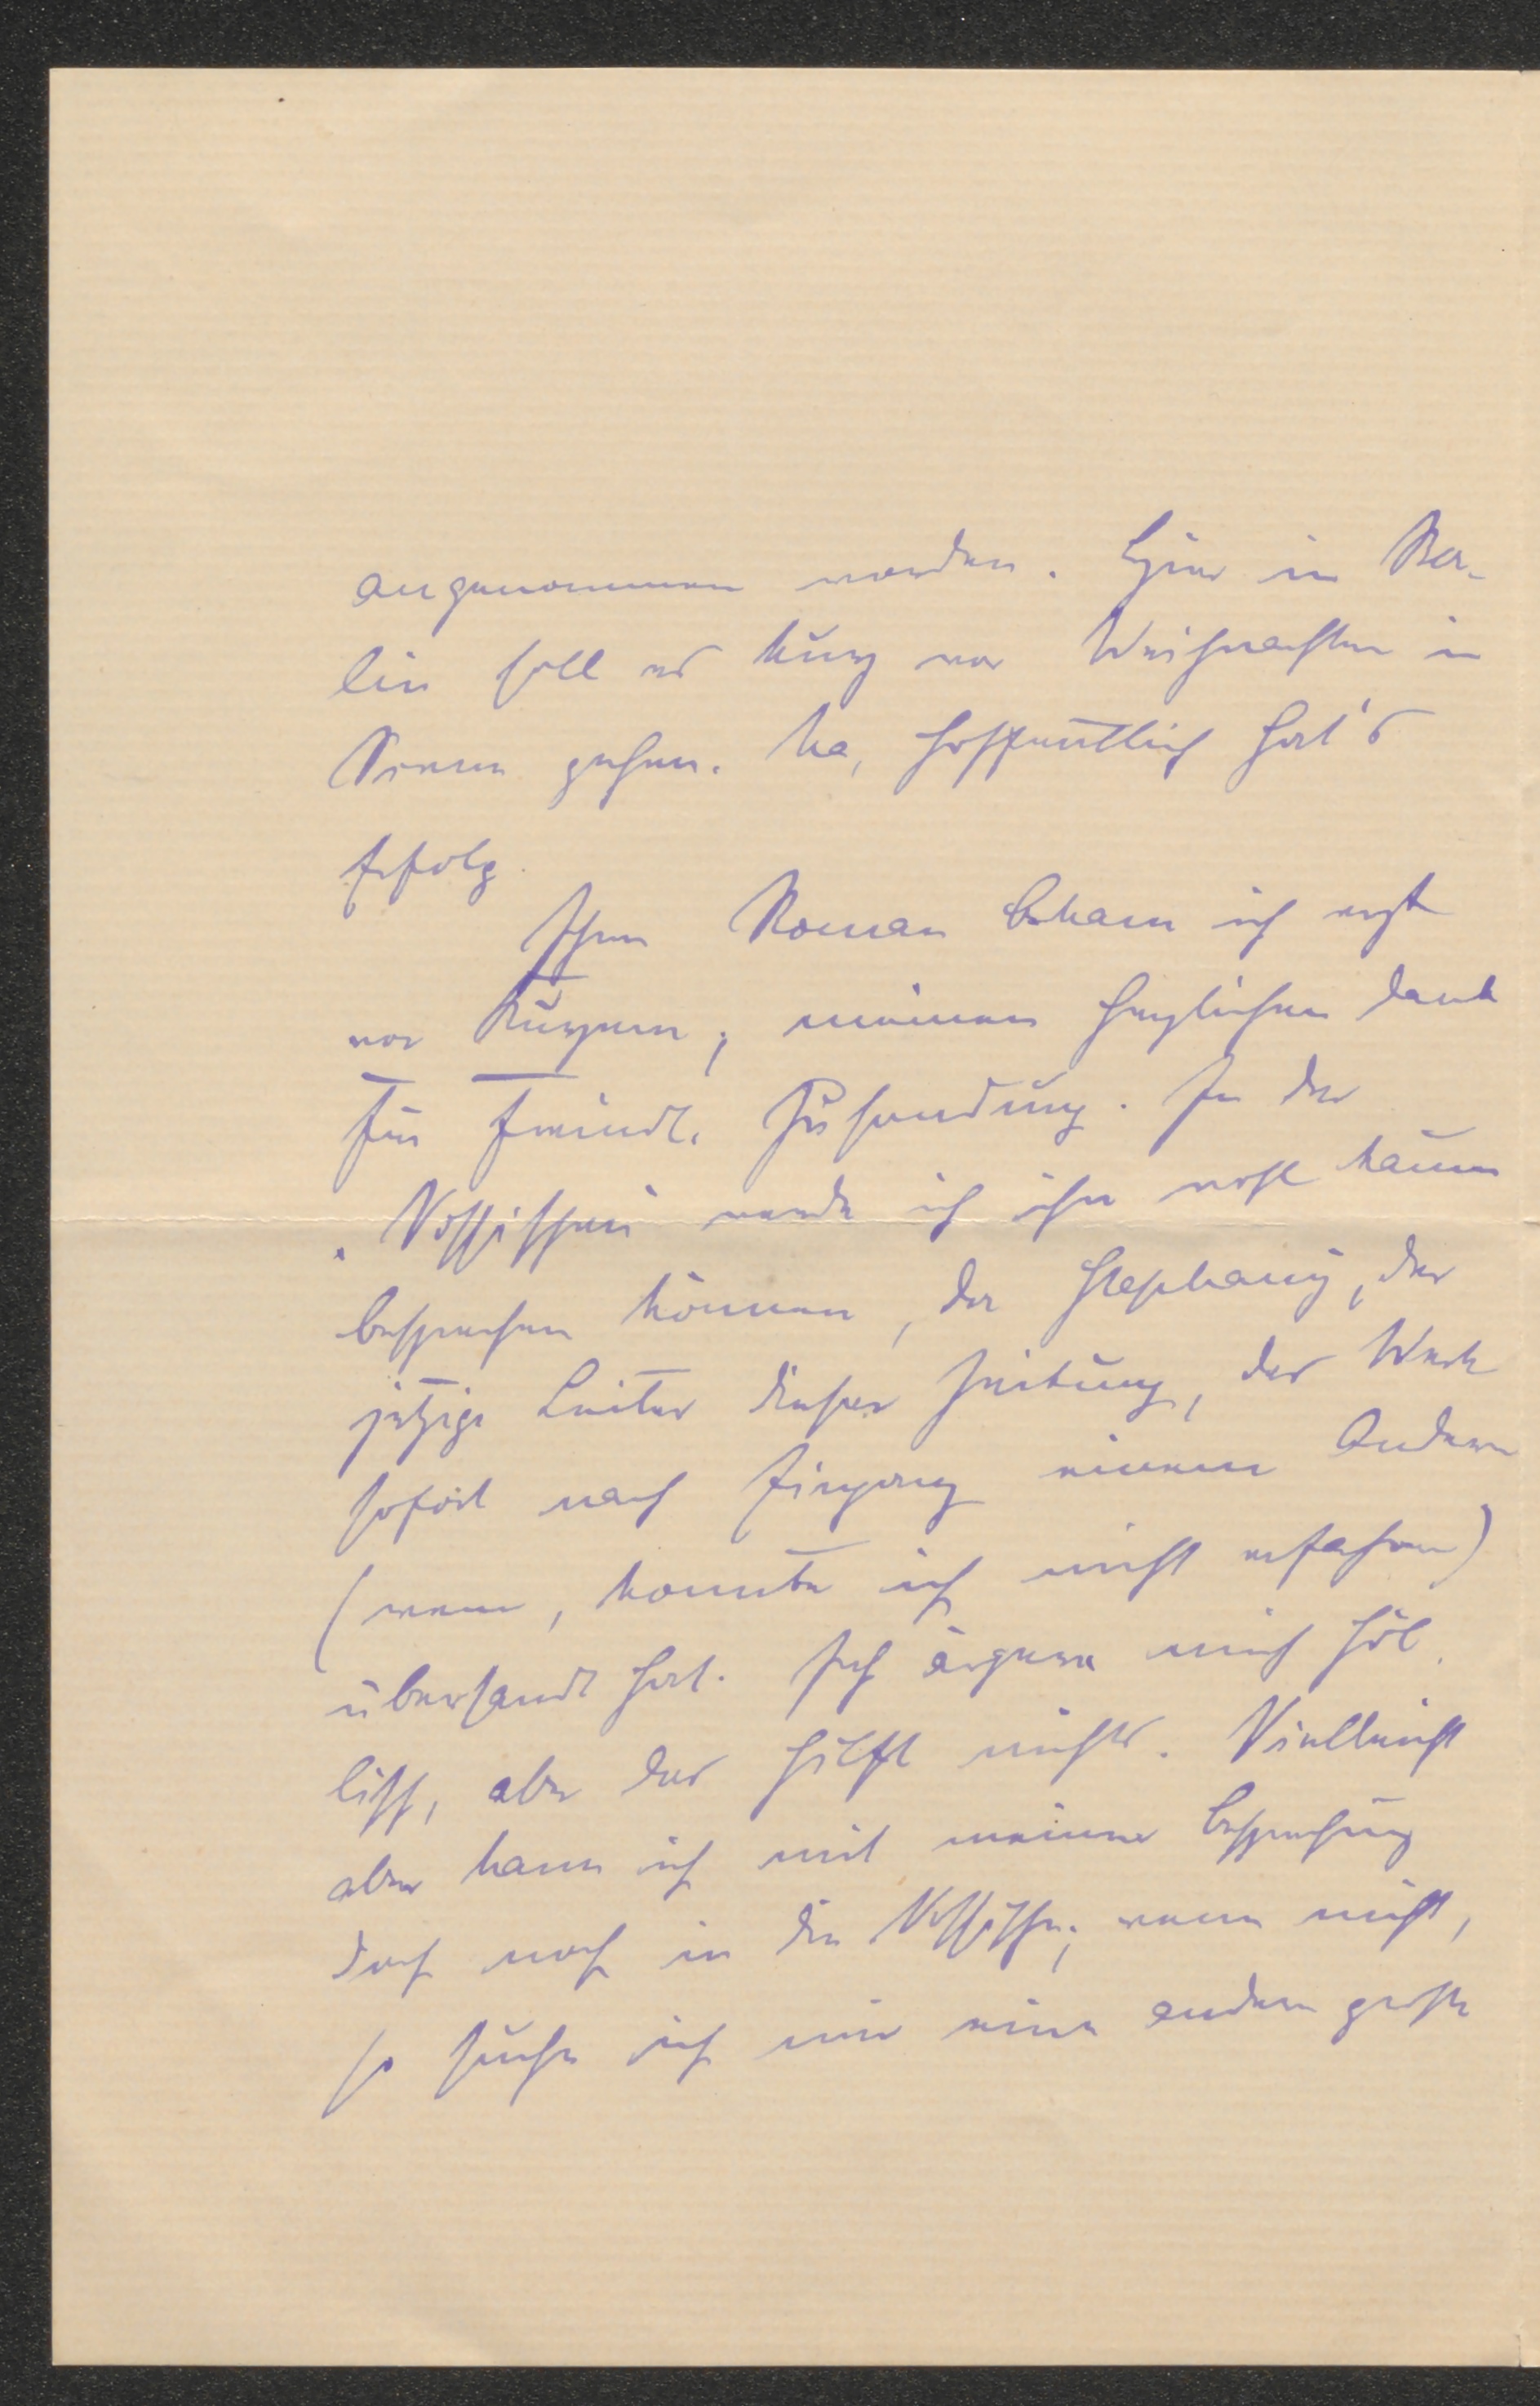 angenommen worden. Hier in Ber-
lin soll es kurz vor Weihnachten in
Scene gehen. Na, hoffentlich hat's
Erfolg.
Ihren Roman bekam ich erst
vor Kurzem; meinen herzlichen Dank
für freundl. Zusendung. In der
„Vossischen" werde ich ihn wohl kaum
besprechen können, da Stephany, der
jetzige Leiter dieser Zeitung, das Werk
sofort nach Eingang einem Andern
(wem, konnte ich nicht erfahren)
übersandt hat. Ich ärgere mich höl-
lisch, aber das hilft nichts. Vielleicht
aber kann ich mit meiner Besprechung
doch noch in die Vossische; wenn nicht,
so suche ich mir eine andere große